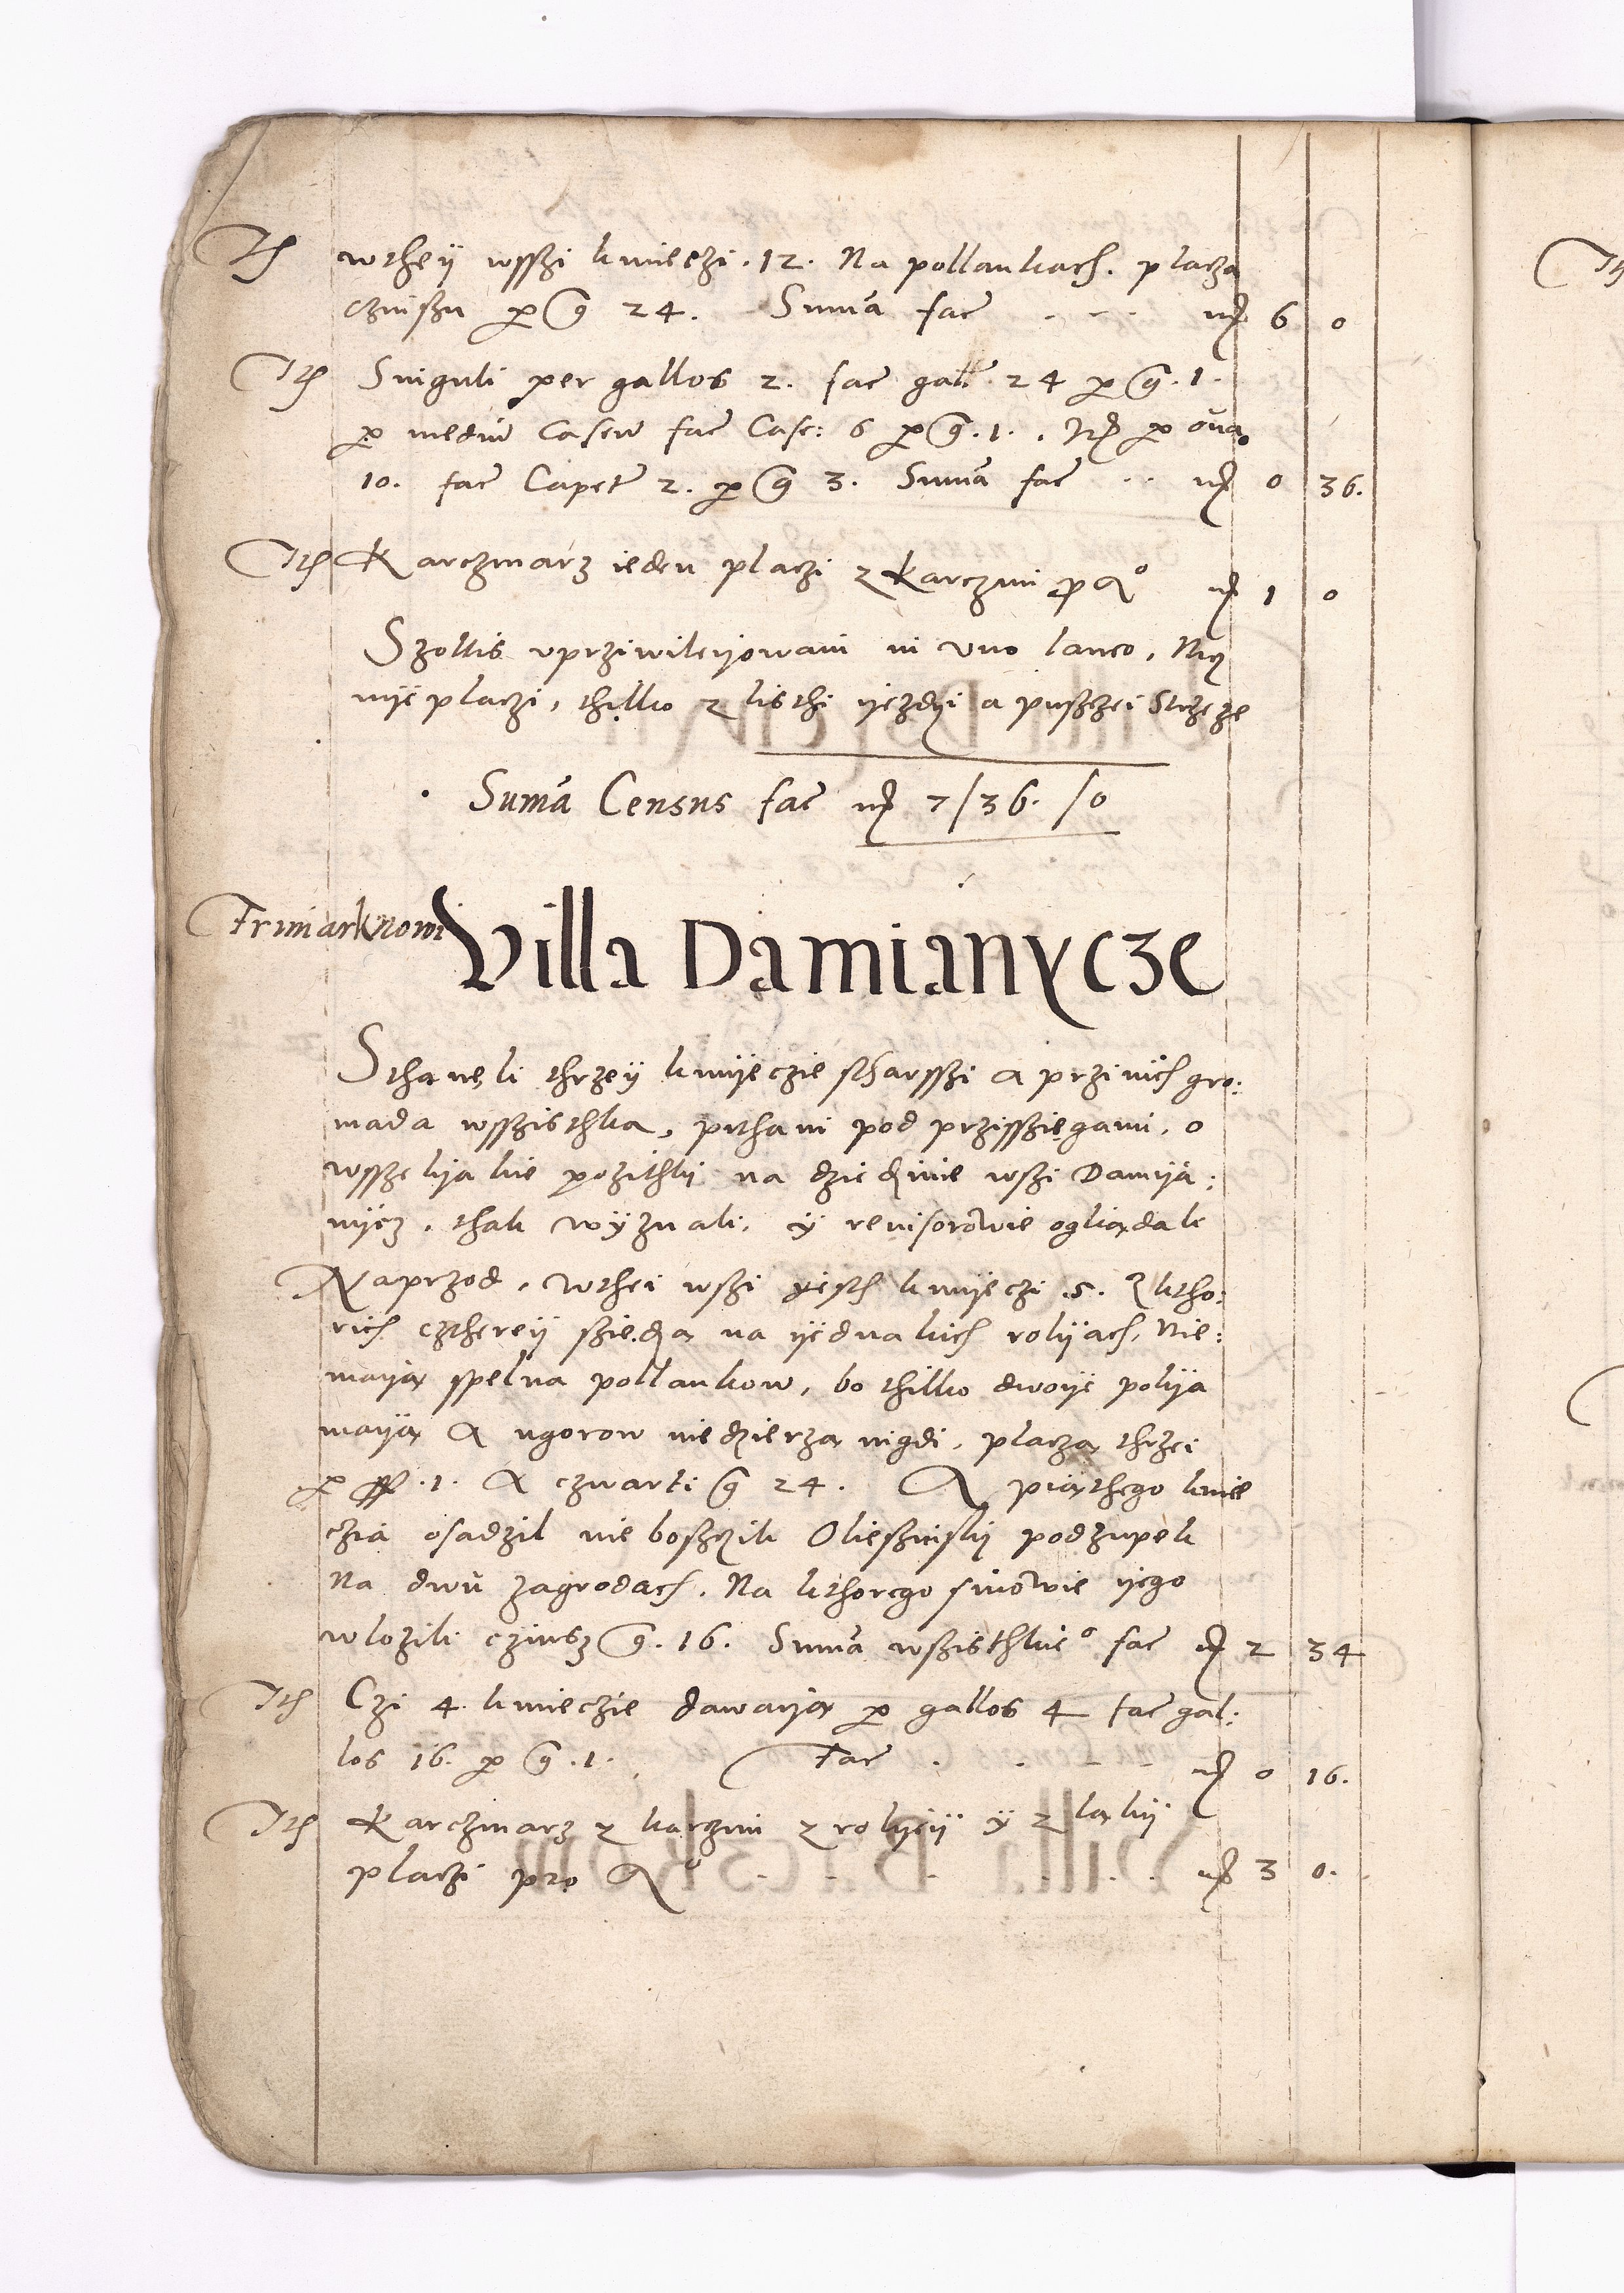 Itm wthey wsszi kmieczi. 12. Na pollankach. placza
czinszu per g 24. Suma fac mr 6 0
Itm Singuli per gallos 2. fac gall 24 per g. 1.
per mediu Caseu fac Case: 6 per g. 1. Itm per oua
10. fac Capet 2. per g 3. Suma fac mr 0 36.
Itm Karczmarz ieden placzi z karczmi pro Ao mr 1 0
Szoltis vprziwileyowani in vno laneo, Nicz
nyeplaczi, thilko z listhi yezdzi a puszczei Strzeze
Suma Census fac mr 7/36. /0
Villa Damianycze
Sthaneli thrzey kmyeczie stharsszi a przi nich gro:
mada wsszisthka, pithani pod przisszięgami, o
wsszelyakie pozithky na dziedzinie wszi Damya:
nycz, thak wyznali, y reuisorowie ogliądali
Naprzod, wthei wszi yesth kmyeczi .5. Z ktho:
rich cztherey sziedzą na yednakich rolyach, Nie:
mayą spelna pollankow, bo thilko dwoye polya
mayą A ugorow niedzierzą nigdi, placzą thrzei
per .1. A czwarti g 24. A piąthego kmie
czia osadzil nieboszczik Olieszinsky podzupek
Na dwu zagrodach. Na kthorego sinowie yego
wlozili czinsz g. 16. Suma wszisthkieo fac mr 2 34
Itm Czi 4 kmieczie dawayą per gallos 4 fac gal:
los 16. per g. 1. Fac mr 0 16.
Itm Karczmarz z karczmi z rolyey y z ląky
placzi pro Ao mr 3 0.